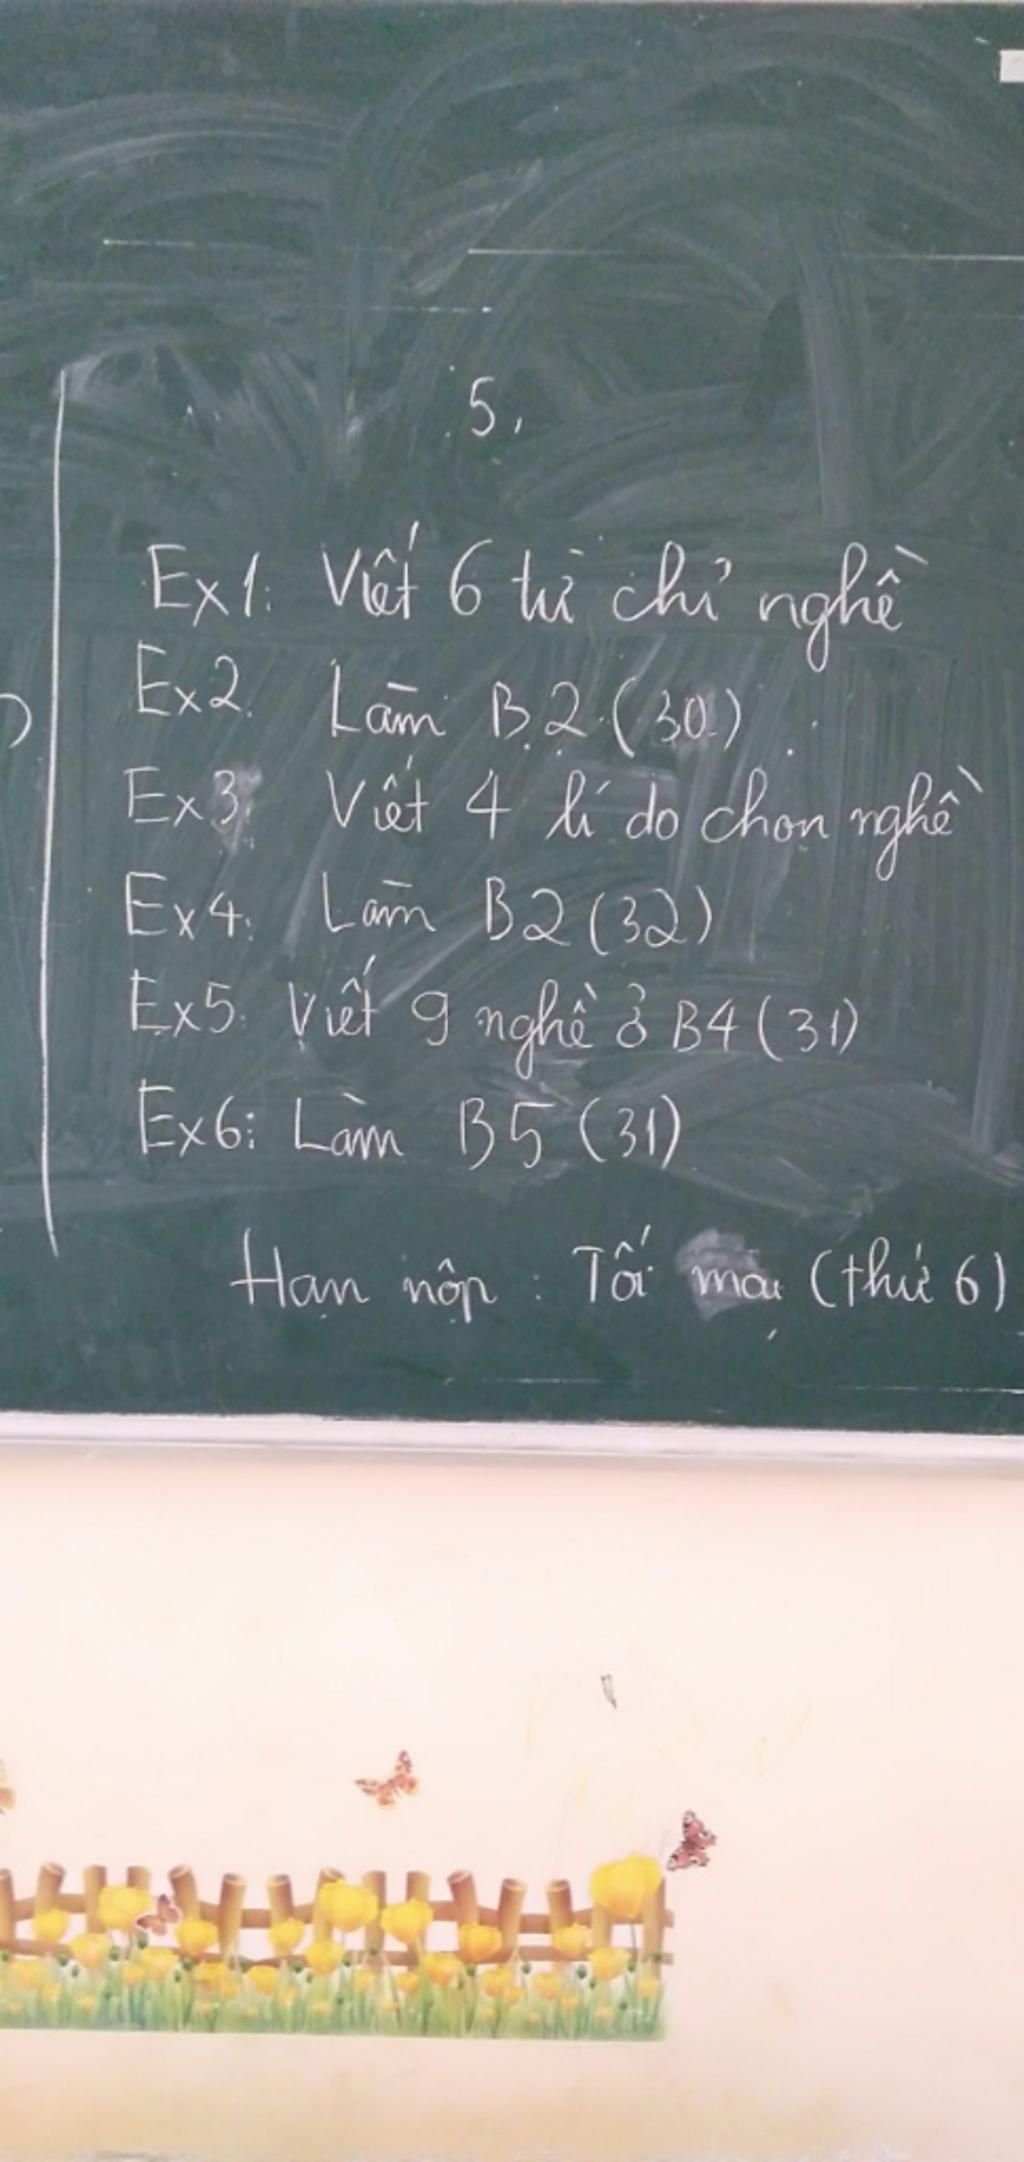 5.
Ex1: Viết 6 từ chỉ nghề
Ex2. Làm B.2 (30)
Ex3: Viết 4 lí do chọn nghề
Ex4: Làm B2 (32)
Ex5. Viết 9 nghề ở B4 (31)
Ex6: Làm B5 (31)
Hạn nộp : Tối mai (thứ 6)